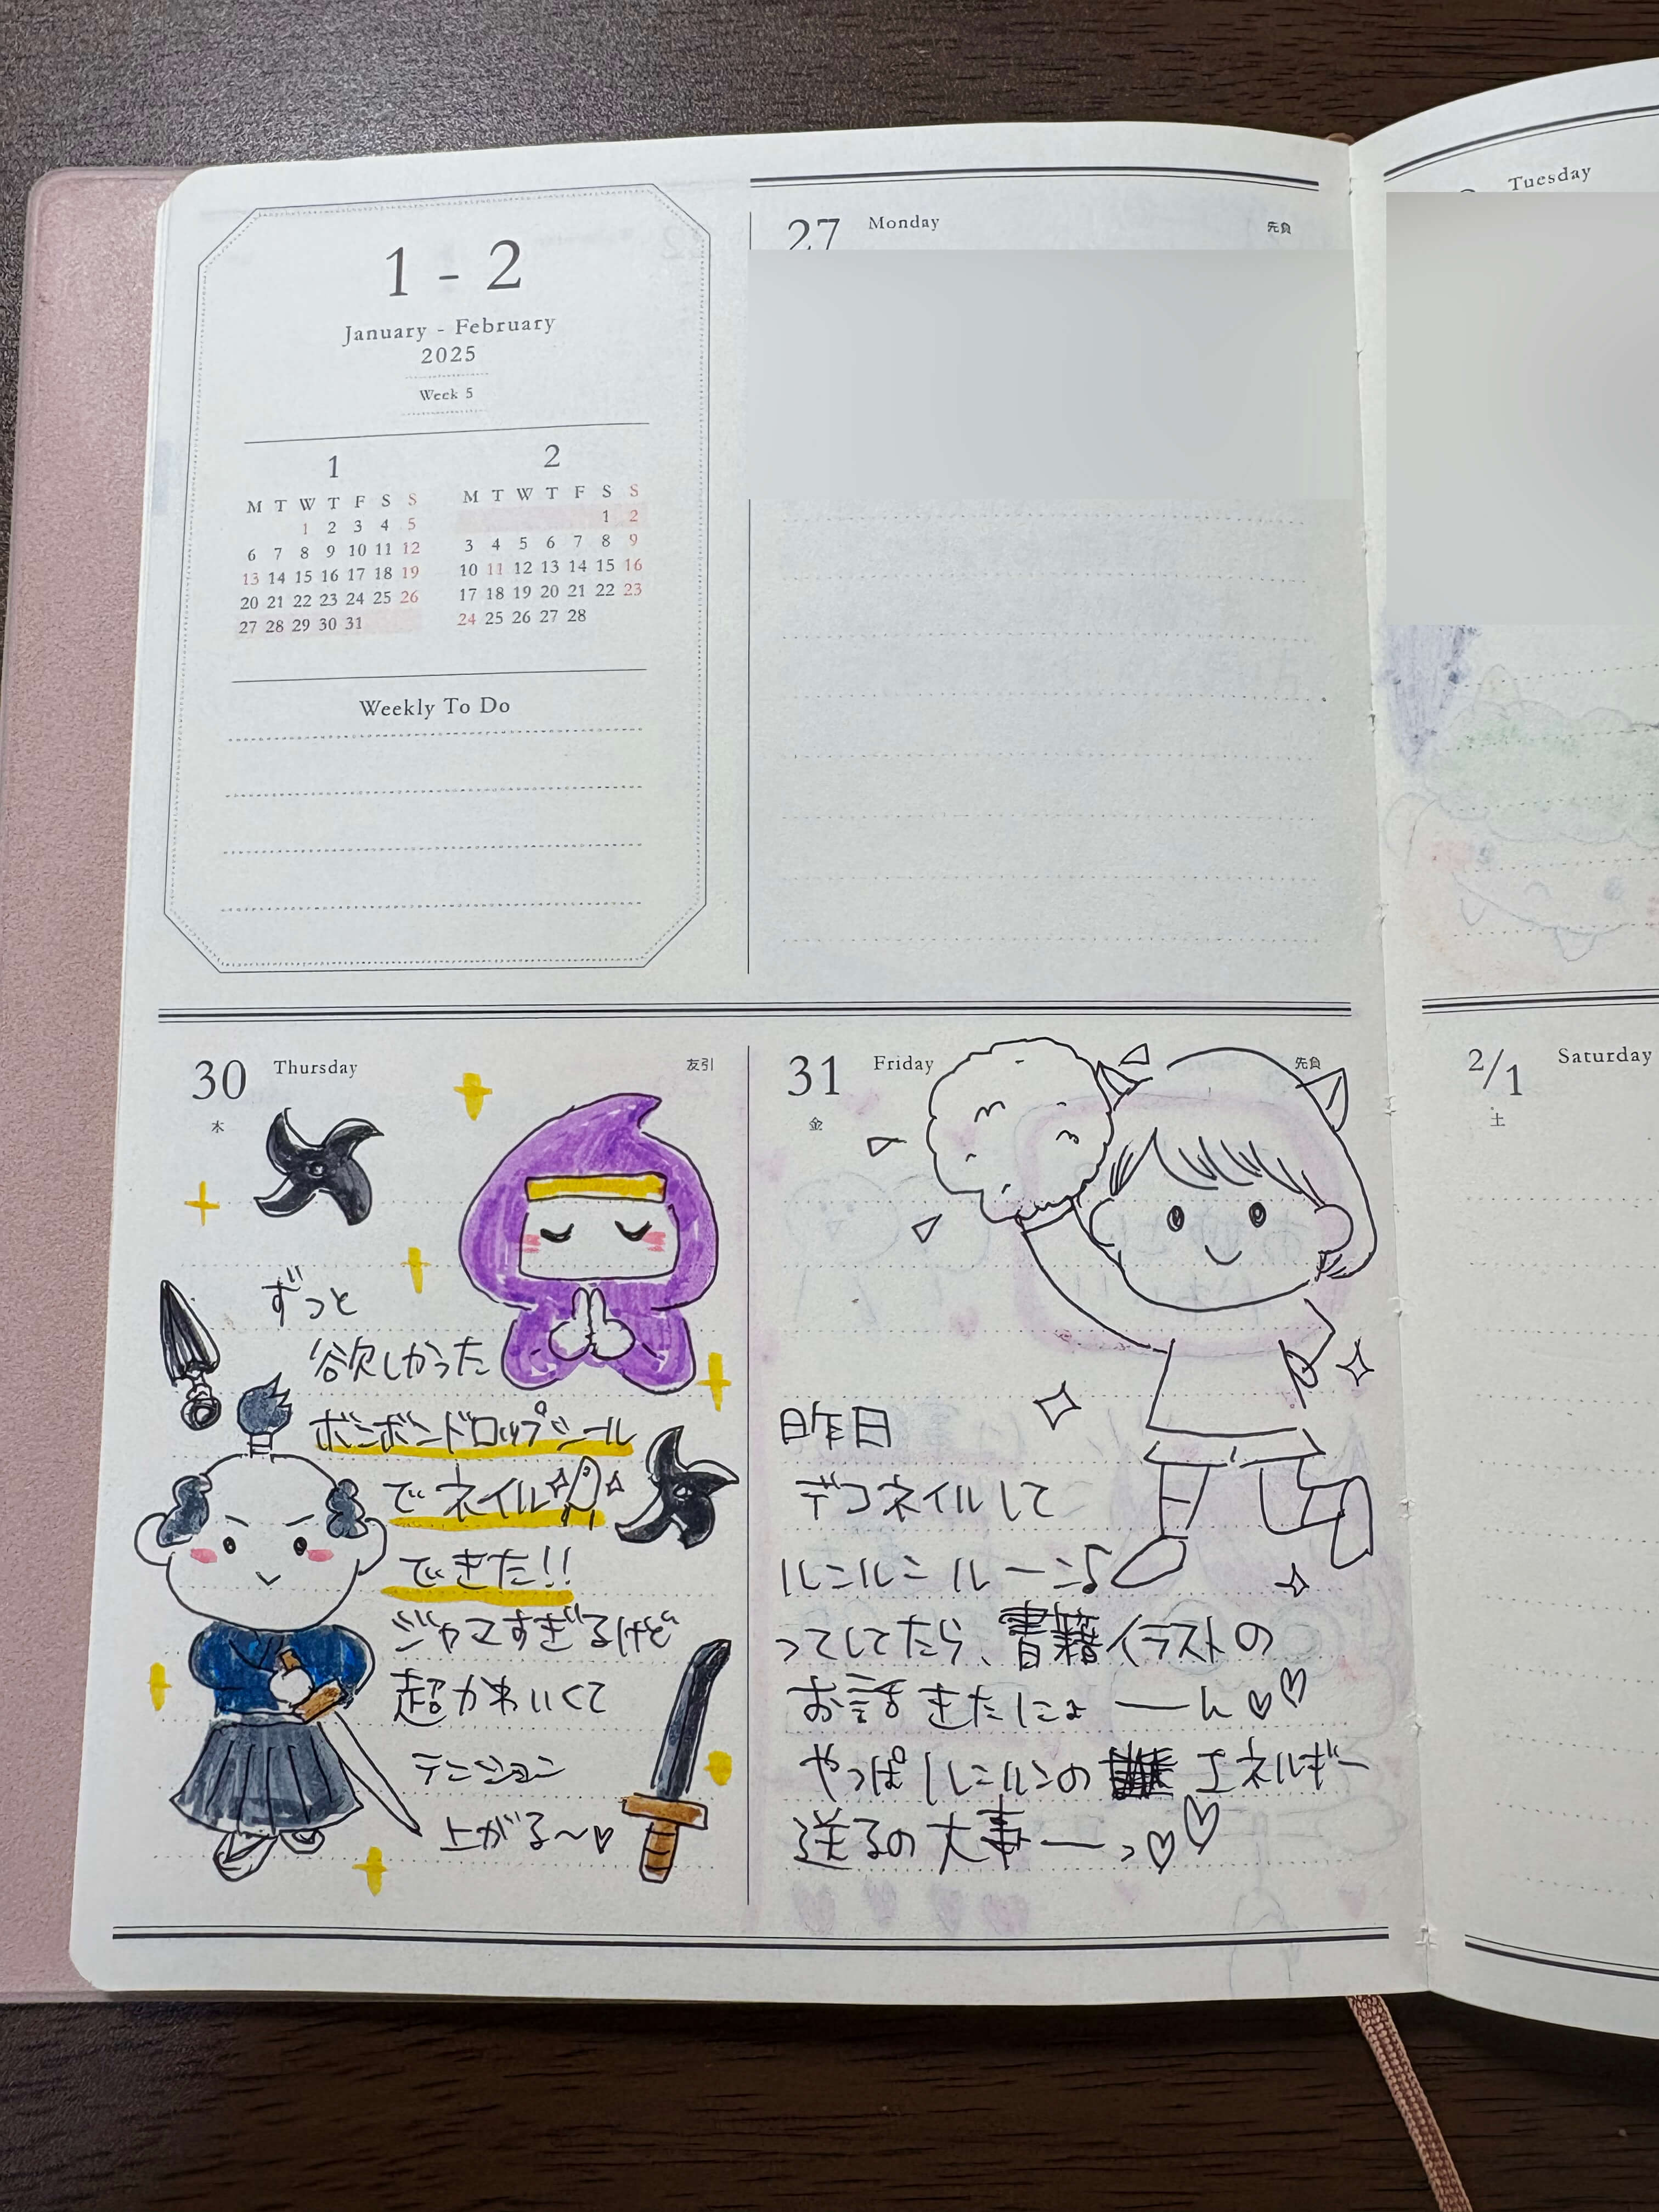 1 - 2
January - February
2025
Week 5
1
M T W T F S S
1 2 3 4 5
6 7 8 9 10 11 12
13 14 15 16 17 18 19
20 21 22 23 24 25 26
27 28 29 30 31
2
M T W T F S S
1 2
3 4 5 6 7 8 9
10 11 12 13 14 15 16
17 18 19 20 21 22 23
24 25 26 27 28
Weekly To Do
27 Monday 先負
Tuesday
30 Thursday 友引
木
ずっと
欲しかった
ボンボンドロップシール
でネイル
できた!!
ジャマすぎるけど
超かわいくて
テンション
上がる〜♡
31 Friday 先負
金
昨日
デコネイルして
ルンルンルーン♪
ってしてたら、書籍イラストの
お話きたにょーん♡♡
やっぱルンルンの エネルギー
送るの大事ーっ♡♡
2/1 Saturday
土